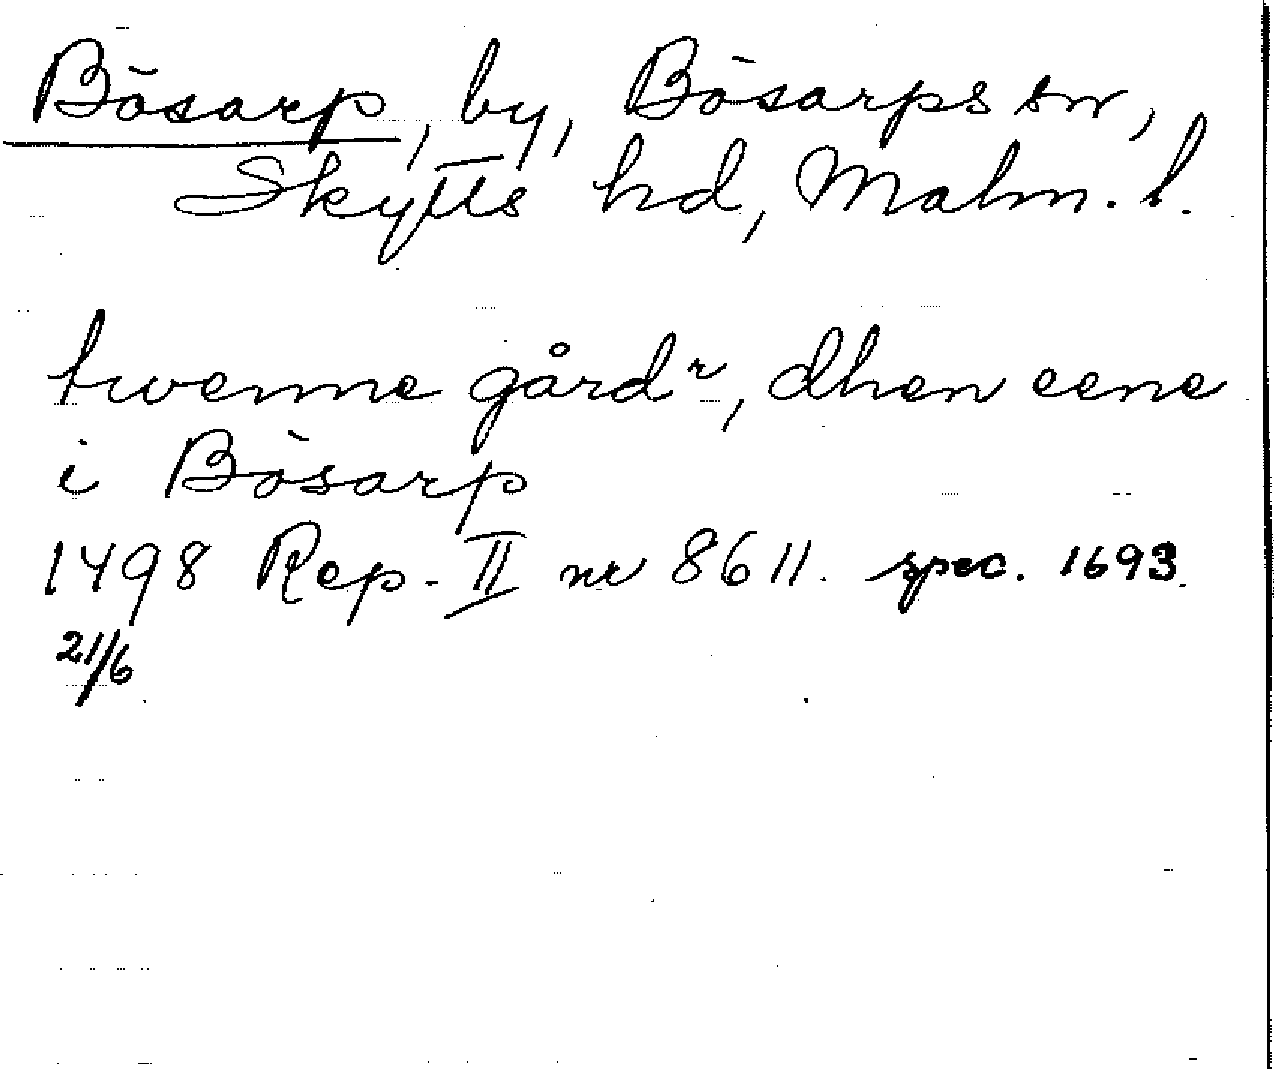 Bösarp, by, Bösarps sn,
Skytts hd, Malm. l.
twenne gårdʳ, dhen eene
i Bösarp
1498 Rep. II nr 8611. spec. 1693.
21/6